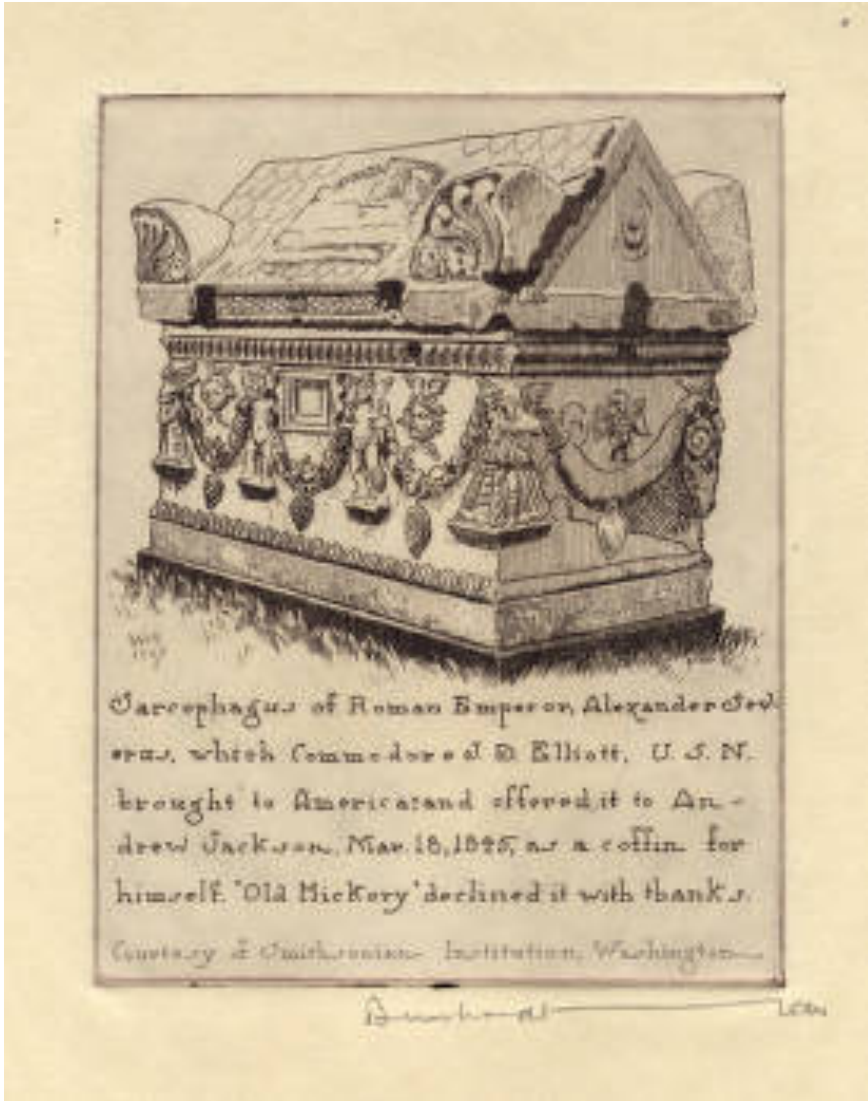 Sarcophagus of Roman Emperor, Alexander Sev-
erus, which Commodore J. D. Elliott, U. S. N.
brought to America and offered it to An-
drew Jackson, Mar. 18, 1845, as a coffin for
himself. 'Old Hickory' declined it with thanks.
Courtesy of Smithsonian Institution, Washington